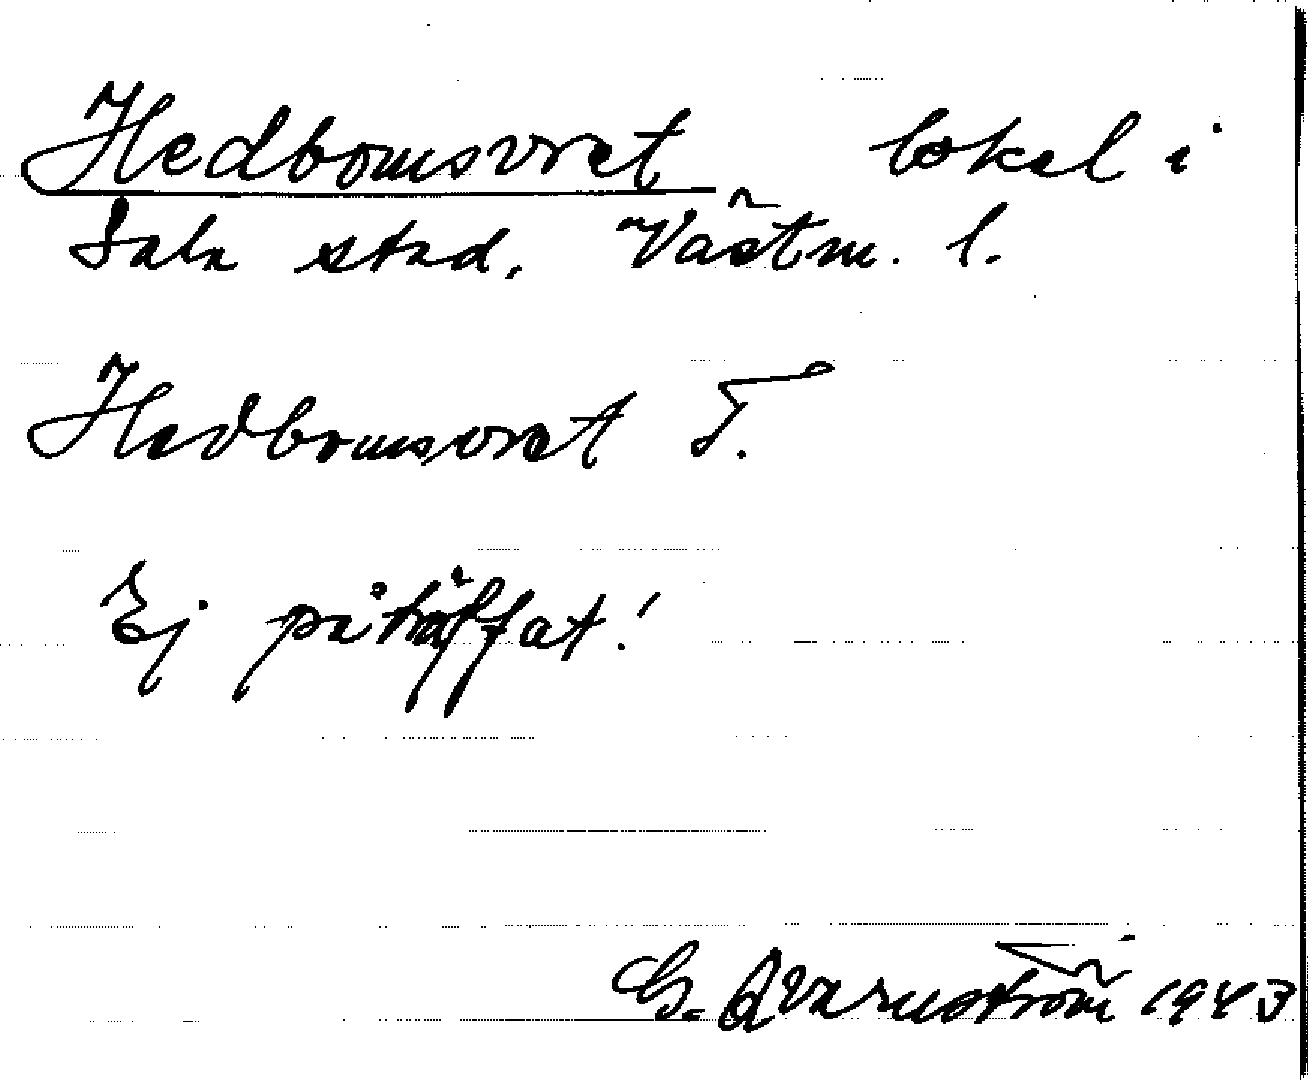 Hedbomsvret lokal i
Sala stad. Västm. l.
Hedbomsvret T.
Ej påträffat!
G. Qvarnström 1943